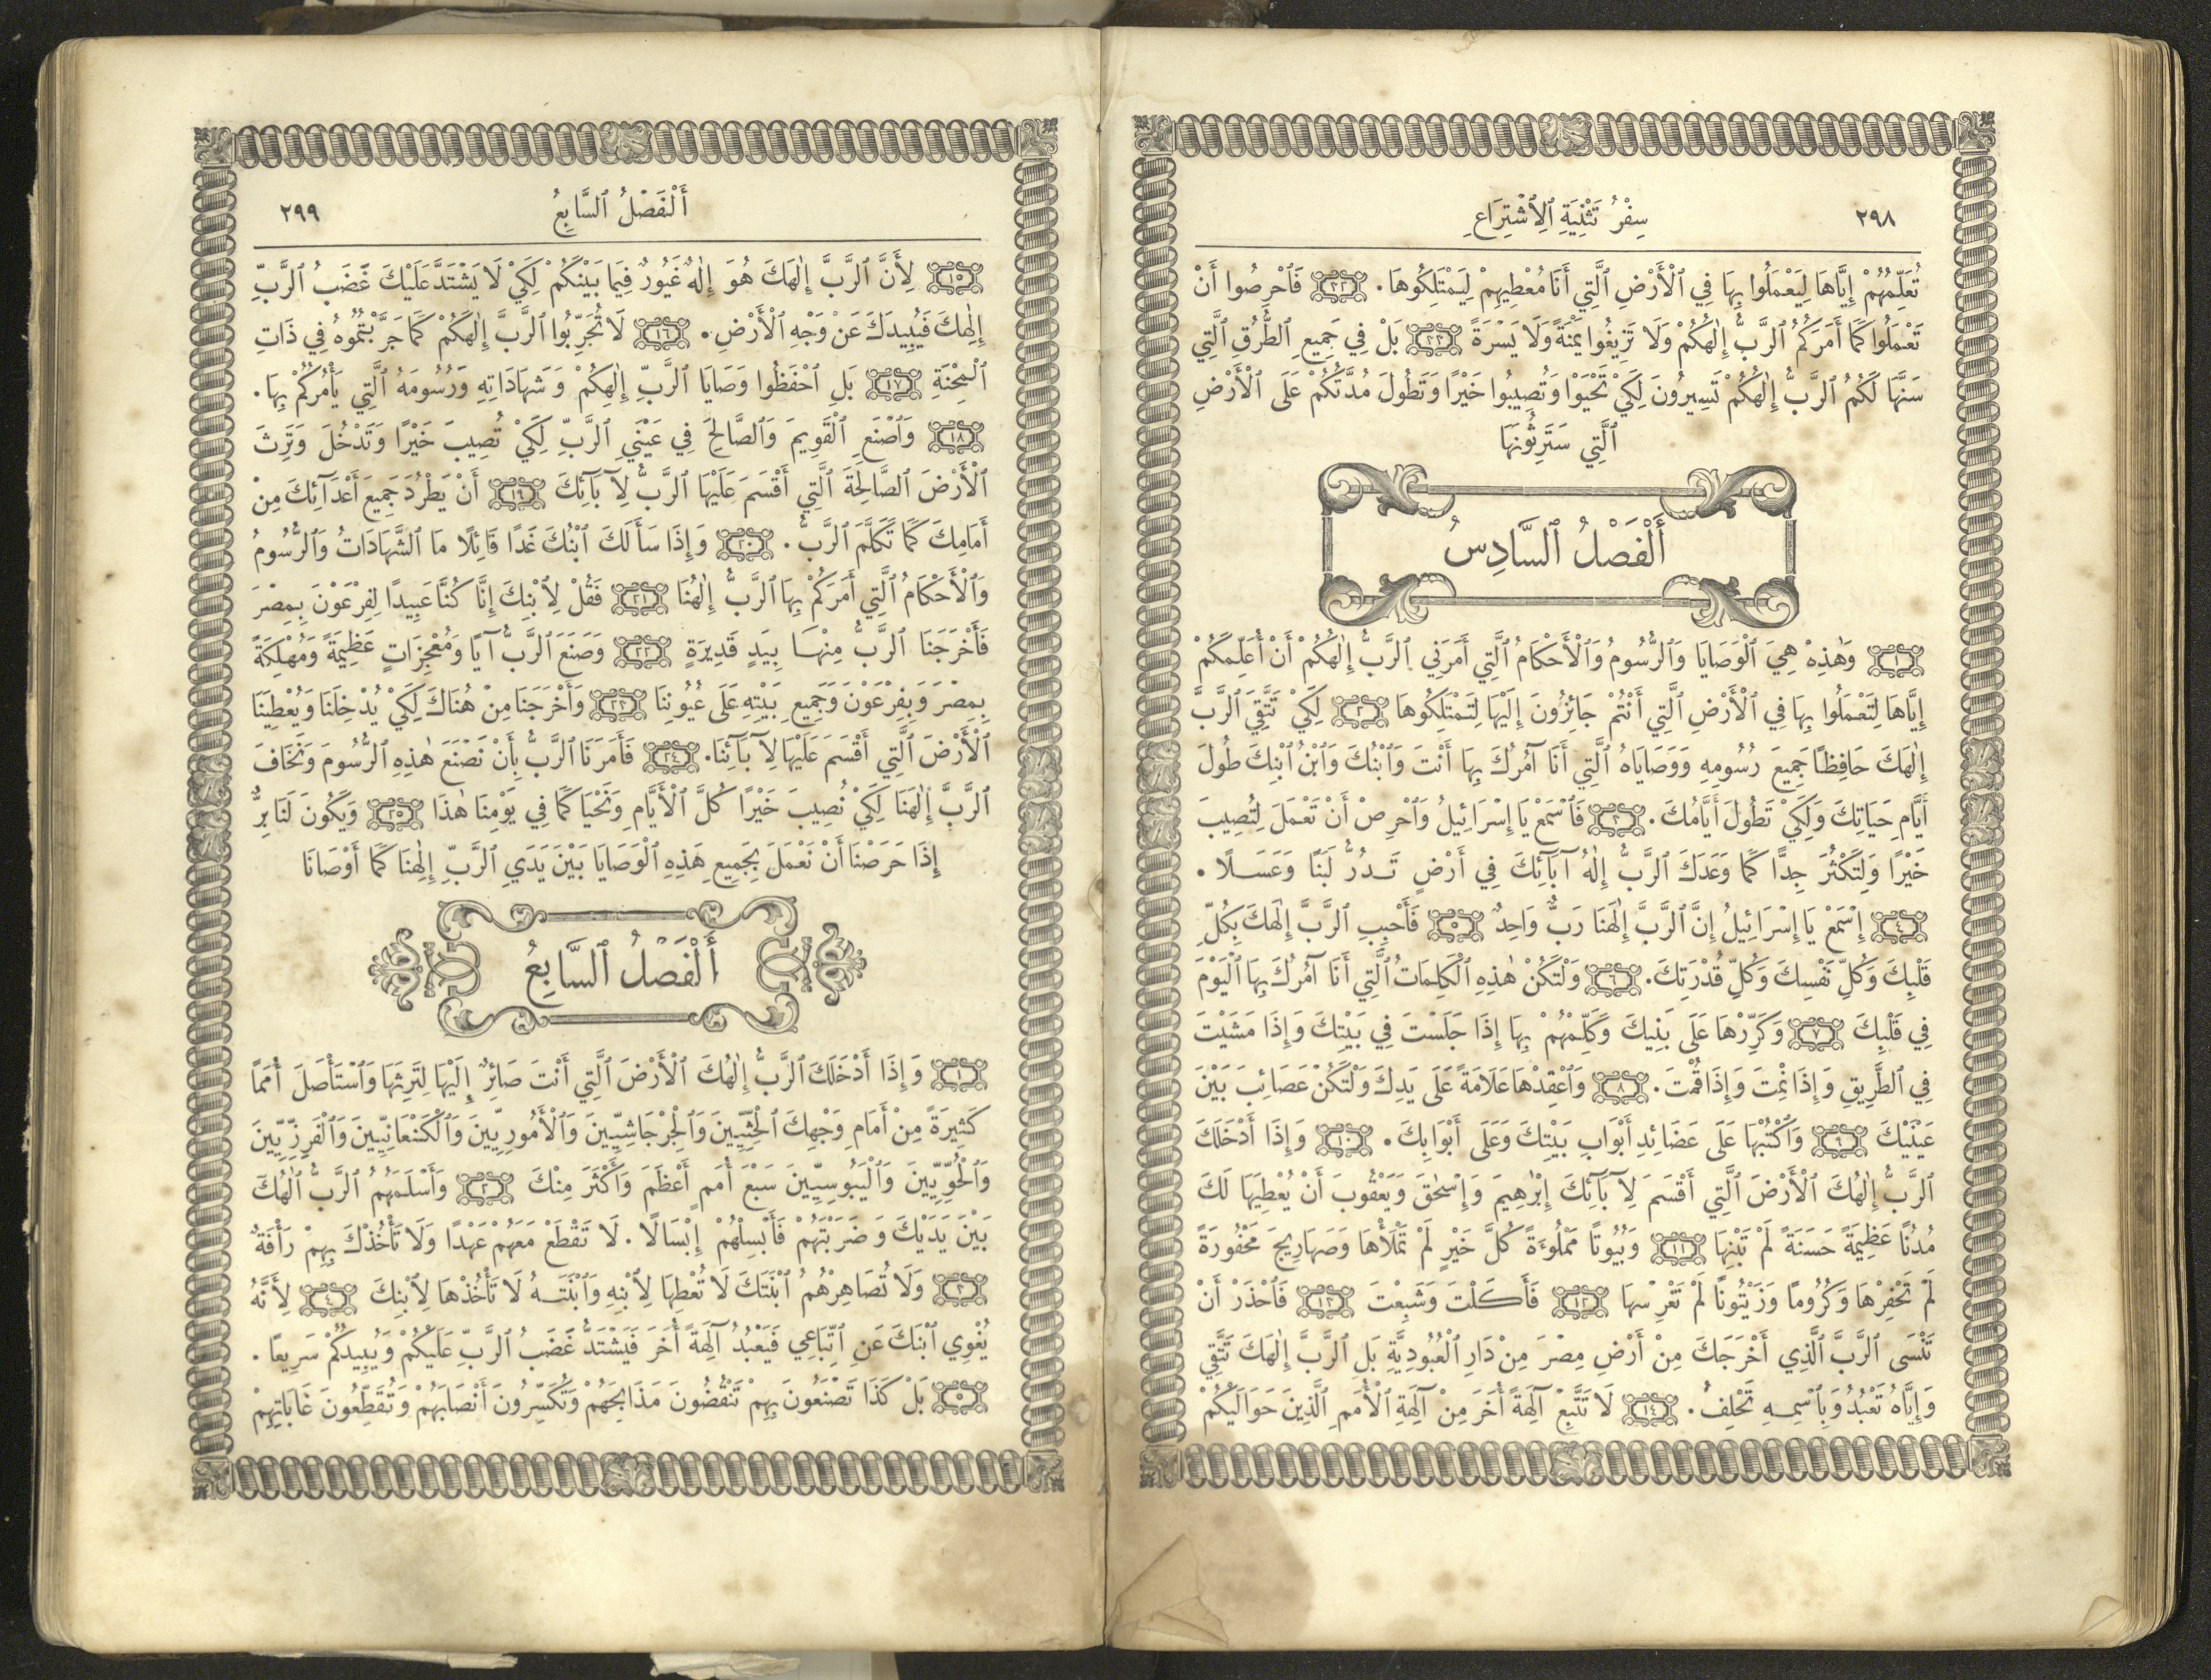 ٢٩٨
سِفْرُ تَثْنِيَةِ ٱلِٱشْتِرَاعِ
تُعَلِّمُهُمْ إِيَّاهَا لِيَعْمَلُوا بِهَا فِي ٱلْأَرْضِ ٱلَّتِي أَنَا مُعْطِيهِمْ لِيَمْتَلِكُوهَا. ٣٢ فَٱحْرِصُوا أَنْ
تَعْمَلُوا كَمَا أَمَرَكُمُ ٱلرَّبُّ إِلٰهُكُمْ وَلَا تَزِيغُوا يَمْنَةً وَلَا يَسْرَةً ٣٣ بَلْ فِي جَمِيعِ ٱلطُّرُقِ ٱلَّتِي
سَنَّهَا لَكُمُ ٱلرَّبُّ إِلٰهُكُمْ تَسِيرُونَ لِكَيْ تَحْيَوْا وَتُصِيبُوا خَيْرًا وَتَطُولَ مُدَّتُكُمْ عَلَى ٱلْأَرْضِ
ٱلَّتِي سَتَرِثُونَهَا
أَلْفَصْلُ ٱلسَّادِسُ
١ وَهٰذِهْ هِيَ ٱلْوَصَايَا وَٱلرُّسُومُ وَٱلْأَحْكَامُ ٱلَّتِي أَمَرَنِي ٱلرَّبُّ إِلٰهُكُمْ أَنْ أُعَلِّمَكُمْ
إِيَّاهَا لِتَعْمَلُوا بِهَا فِي ٱلْأَرْضِ ٱلَّتِي أَنْتُمْ جَائِزُونَ إِلَيْهَا لِتَمْتَلِكُوهَا ٢ لِكَيْ تَتَّقِيَ ٱلرَّبَّ
إِلٰهَكَ حَافِظًا جَمِيعَ رُسُومِهِ وَوَصَايَاهُ ٱلَّتِي أَنَا آمُرُكَ بِهَا أَنْتَ وَٱبْنُكَ وَٱبْنُ ٱبْنِكَ طُولَ
أَيَّامِ حَيَاتِكَ وَلِكَيْ تَطُولَ أَيَّامُكَ. ٣ فَٱسْمَعْ يَا إِسْرَائِيلُ وَٱحْرِصْ أَنْ تَعْمَلَ لِتُصِيبَ
خَيْرًا وَلِتَكْثُرَ جِدًّا كَمَا وَعَدَكَ ٱلرَّبُّ إِلٰهُ آبَآئِكَ فِي أَرْضٍ تَدُرُّ لَبَنًا وَعَسَلًا.
٤ إِسْمَعْ يَا إِسْرَائِيلُ إِنَّ ٱلرَّبَّ إِلٰهَنَا رَبٌّ وَاحِدٌ ٥ فَأَحْبِبِ ٱلرَّبَّ إِلٰهَكَ بِكُلِّ
قَلْبِكَ وَكُلِّ نَفْسِكَ وَكُلِّ قُدْرَتِكَ. ٦ وَلْتَكُنْ هٰذِهِ ٱلْكَلِمَاتُ ٱلَّتِي أَنَا آمُرُكَ بِهَا ٱلْيَوْمَ
فِي قَلْبِكَ ٧ وَكَرِّرْهَا عَلَى بَنِيكَ وَكَلِّمْهُمْ بِهَا إِذَا جَلَسْتَ فِي بَيْتِكَ وَإِذَا مَشَيْتَ
فِي ٱلطَّرِيقِ وَإِذَا نِمْتَ وَإِذَا قُمْتَ. ٨ وَٱعْقِدْهَا عَلَامَةً عَلَى يَدِكَ وَلْتَكُنْ عَصَائِبَ بَيْنَ
عَيْنَيْكَ ٩ وَٱكْتُبْهَا عَلَى عَضَائِدِ أَبْوَابِ بَيْتِكَ وَعَلَى أَبْوَابِكَ. ١٠ وَإِذَا أَدْخَلَكَ
ٱلرَّبُّ إِلٰهُكَ ٱلْأَرْضَ ٱلَّتِي أَقْسَمَ لِآبَآئِكَ إِبْرٰهِيمَ وَإِسْحٰقَ وَيَعْقُوبَ أَنْ يُعْطِيَهَا لَكَ
مُدُنًا عَظِيمَةً حَسَنَةً لَمْ تَبْنِهَا ١١ وَبُيُوتًا مَمْلُوءَةً كُلَّ خَيْرٍ لَمْ تَمْلَأْهَا وَصَهَارِيجَ مَحْفُورَةً
لَمْ تَحْفِرْهَا وَكُرُومًا وَزَيْتُونًا لَمْ تَغْرِسْهَا ١٢ فَأَكَلْتَ وَشَبِعْتَ ١٣ فَٱحْذَرْ أَنْ
تَنْسَى ٱلرَّبَّ ٱلَّذِي أَخْرَجَكَ مِنْ أَرْضِ مِصْرَ مِنْ دَارِ ٱلْعُبُودِيَّةِ بَلِ ٱلرَّبَّ إِلٰهَكَ تَتَّقِي
وَإِيَّاهُ تَعْبُدُ وَبِٱسْمِهِ تَحْلِفُ. ١٤ لَا تَتَّبِعْ آلِهَةً أُخَرَ مِنْ آلِهَةِ ٱلْأُمَمِ ٱلَّذِينَ حَوَالَيْكُمْ
أَلْفَصْلُ ٱلسَّابِعُ
٢٩٩
١٥ لِأَنَّ ٱلرَّبَّ إِلٰهَكَ هُوَ إِلٰهٌ غَيُورٌ فِيمَا بَيْنَكُمْ لِكَيْ لَا يَشْتَدَّ عَلَيْكَ غَضَبُ ٱلرَّبِّ
إِلٰهِكَ فَيُبِيدَكَ عَنْ وَجْهِ ٱلْأَرْضِ. ١٦ لَا تُجَرِّبُوا ٱلرَّبَّ إِلٰهَكُمْ كَمَا جَرَّبْتُمُوهُ فِي ذَاتِ
ٱلْمِحْنَةِ ١٧ بَلِ ٱحْفَظُوا وَصَايَا ٱلرَّبِّ إِلٰهِكُمْ وَشَهَادَاتِهِ وَرُسُومَهُ ٱلَّتِي يَأْمُرُكُمْ بِهَا.
١٨ وَٱصْنَعِ ٱلْقَوِيمَ وَٱلصَّالِحَ فِي عَيْنَيِ ٱلرَّبِّ لِكَيْ تُصِيبَ خَيْرًا وَتَدْخُلَ وَتَرِثَ
ٱلْأَرْضَ ٱلصَّالِحَةَ ٱلَّتِي أَقْسَمَ عَلَيْهَا ٱلرَّبُّ لِآبَآئِكَ ١٩ أَنْ يَطْرُدَ جَمِيعَ أَعْدَآئِكَ مِنْ
أَمَامِكَ كَمَا تَكَلَّمَ ٱلرَّبُّ. ٢٠ وَإِذَا سَأَلَكَ ٱبْنُكَ غَدًا قَائِلًا مَا ٱلشَّهَادَاتُ وَٱلرُّسُومُ
وَٱلْأَحْكَامُ ٱلَّتِي أَمَرَكُمْ بِهَا ٱلرَّبُّ إِلٰهُنَا ٢١ فَقُلْ لِٱبْنِكَ إِنَّا كُنَّا عَبِيدًا لِفِرْعَوْنَ بِمِصْرَ
فَأَخْرَجَنَا ٱلرَّبُّ مِنْهَا بِيَدٍ قَدِيرَةٍ ٢٢ وَصَنَعَ ٱلرَّبُّ آيَاتٍ وَمُعْجِزَاتٍ عَظِيمَةً وَمُهْلِكَةً
بِمِصْرَ وَبِفِرْعَوْنَ وَجَمِيعِ بَيْتِهِ عَلَى عُيُونِنَا ٢٣ وَأَخْرَجَنَا مِنْ هُنَاكَ لِكَيْ يُدْخِلَنَا وَيُعْطِيَنَا
ٱلْأَرْضَ ٱلَّتِي أَقْسَمَ عَلَيْهَا لِآبَآئِنَا. ٢٤ فَأَمَرَنَا ٱلرَّبُّ بِأَنْ نَصْنَعَ هٰذِهِ ٱلرُّسُومَ وَنَخَافَ
ٱلرَّبَّ إِلٰهَنَا لِكَيْ نُصِيبَ خَيْرًا كُلَّ ٱلْأَيَّامِ وَنَحْيَا كَمَا فِي يَوْمِنَا هٰذَا ٢٥ وَيَكُونَ لَنَا بِرٌّ
إِذَا حَرَصْنَا أَنْ نَعْمَلَ بِجَمِيعِ هَذِهِ ٱلْوَصَايَا بَيْنَ يَدَيِ ٱلرَّبِّ إِلٰهِنَا كَمَا أَوْصَانَا
أَلْفَصْلُ ٱلسَّابِعُ
١ وَإِذَا أَدْخَلَكَ ٱلرَّبُّ إِلٰهُكَ ٱلْأَرْضَ ٱلَّتِي أَنْتَ صَائِرٌ إِلَيْهَا لِتَرِثَهَا وَٱسْتَأْصَلَ أُمَمًا
كَثِيرَةً مِنْ أَمَامِ وَجْهِكَ ٱلْحِثِّيِّينَ وَٱلْجِرْجَاشِيِّينَ وَٱلْأَمُورِيِّينَ وَٱلْكَنْعَانِيِّينَ وَٱلْفَرِزِّيِّينَ
وَٱلْحُوِّيِّينَ وَٱلْيَبُوسِيِّينَ سَبْعَ أُمَمٍ أَعْظَمَ وَأَكْثَرَ مِنْكَ ٢ وَأَسْلَمَهُمُ ٱلرَّبُّ إِلٰهُكَ
بَيْنَ يَدَيْكَ وَضَرَبْتَهُمْ فَأَبْسِلْهُمْ إِبْسَالًا. لَا تَقْطَعْ مَعَهُمْ عَهْدًا وَلَا تَأْخُذْكَ بِهِمْ رَأْفَةٌ
٣ وَلَا تُصَاهِرْهُمُ ٱبْنَتَكَ لَا تُعْطِهَا لِٱبْنِهِ وَٱبْنَتَهُ لَا تَأْخُذْهَا لِٱبْنِكَ ٤ لِأَنَّهُ
يُغْوِي ٱبْنَكَ عَنِ ٱتِّبَاعِي فَيَعْبُدُ آلِهَةً أُخَرَ فَيَشْتَدُّ غَضَبُ ٱلرَّبِّ عَلَيْكُمْ وَيُبِيدُكُمْ سَرِيعًا.
٥ بَلْ كَذَا تَصْنَعُونَ بِهِمْ تَنْقُضُونَ مَذَابِحَهُمْ وَتُكَسِّرُونَ أَنْصَابَهُمْ وَتُقَطِّعُونَ غَابَاتِهِمْ